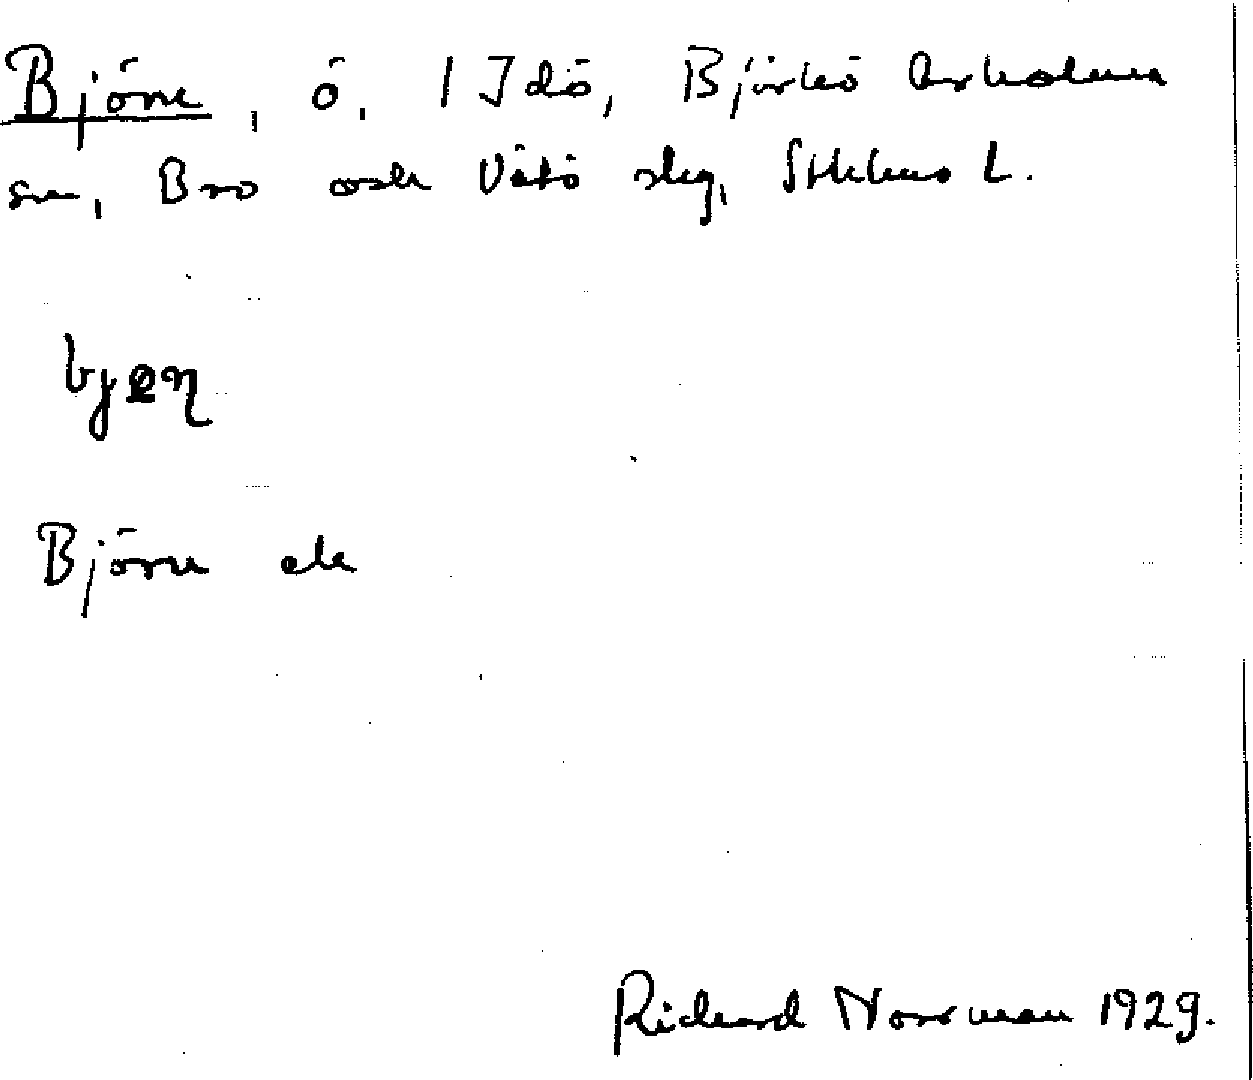 Björn, ö, 1 Idö, Björkö Arholma
sn, Bro och Vätö skg, Sthlms L.
Björn ek
Richard Norrman 1929.